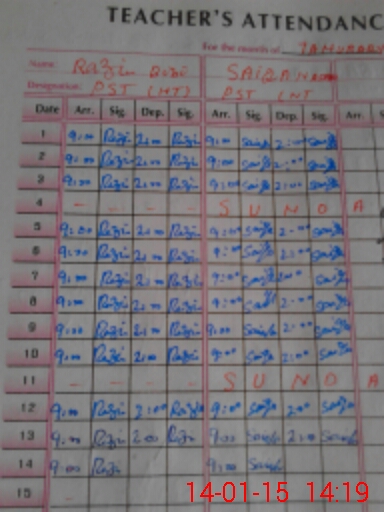 TEACHER'S ATTENDANC
For the month of JANUARY
Name: Razia Bibi SAIQA
Designation: PST (HT) PST HT
Date Arr. Sig. Dep. Sig. Arr. Sig. Dep. Sig. Arr. S
1 9:00 Razi 2:00 Razi 9:00 Saiqa 2:00 Saiqa
2 9:00 Razi 2:00 Razi 9:00 Saiqa 2:00 Saiqa
3 9:00 Razi 2:00 Razi 9:00 Saiqa 2:00 Saiqa
4 - - - - S U N D A
5 9:00 Razi 2:00 Razi 9:00 Saiqa 2:00 Saiqa
6 9:00 Razi 2:00 Razi 9:00 Saiqa 2:00 Saiqa
7 9:00 Razi 2:00 Razi 9:00 Saiqa 2:00 Saiqa
8 9:00 Razi 2:00 Razi 9:00 Saiqa 2:00 Saiqa
9 9:00 Razi 2:00 Razi 9:00 Saiqa 2:00 Saiqa
10 9:00 Razi 2:00 Razi 9:00 Saiqa 2:00 Saiqa
11 - - - - S U N D A
12 9:00 Razi 2:00 Razi 9:00 Saiqa 2:00 Saiqa
13 9:00 Razi 2:00 Razi 9:00 Saiqa 2:00 Saiqa
14 9:00 Razi 9:00 Saiqa
15
14-01-15 14:19